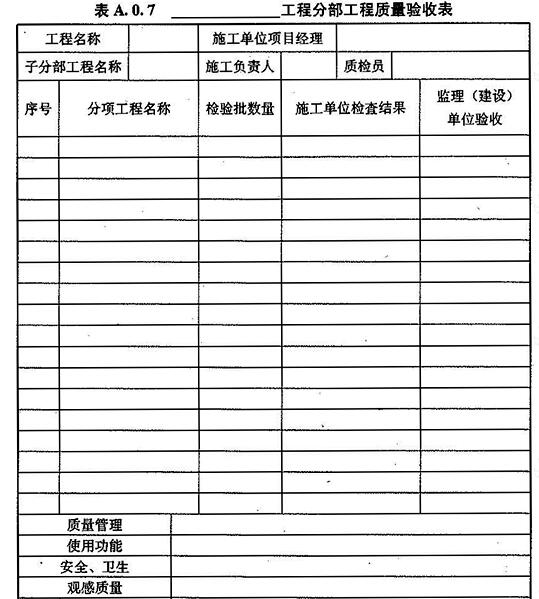 表 A. 0. 7 ____________工程分部工程质量验收表
工程名称 施工单位项目经理
子分部工程名称 施工负责人 质检员
序号 分项工程名称 检验批数量 施工单位检查结果 监理（建设）
单位验收
质量管理
使用功能
安全、卫生
观感质量